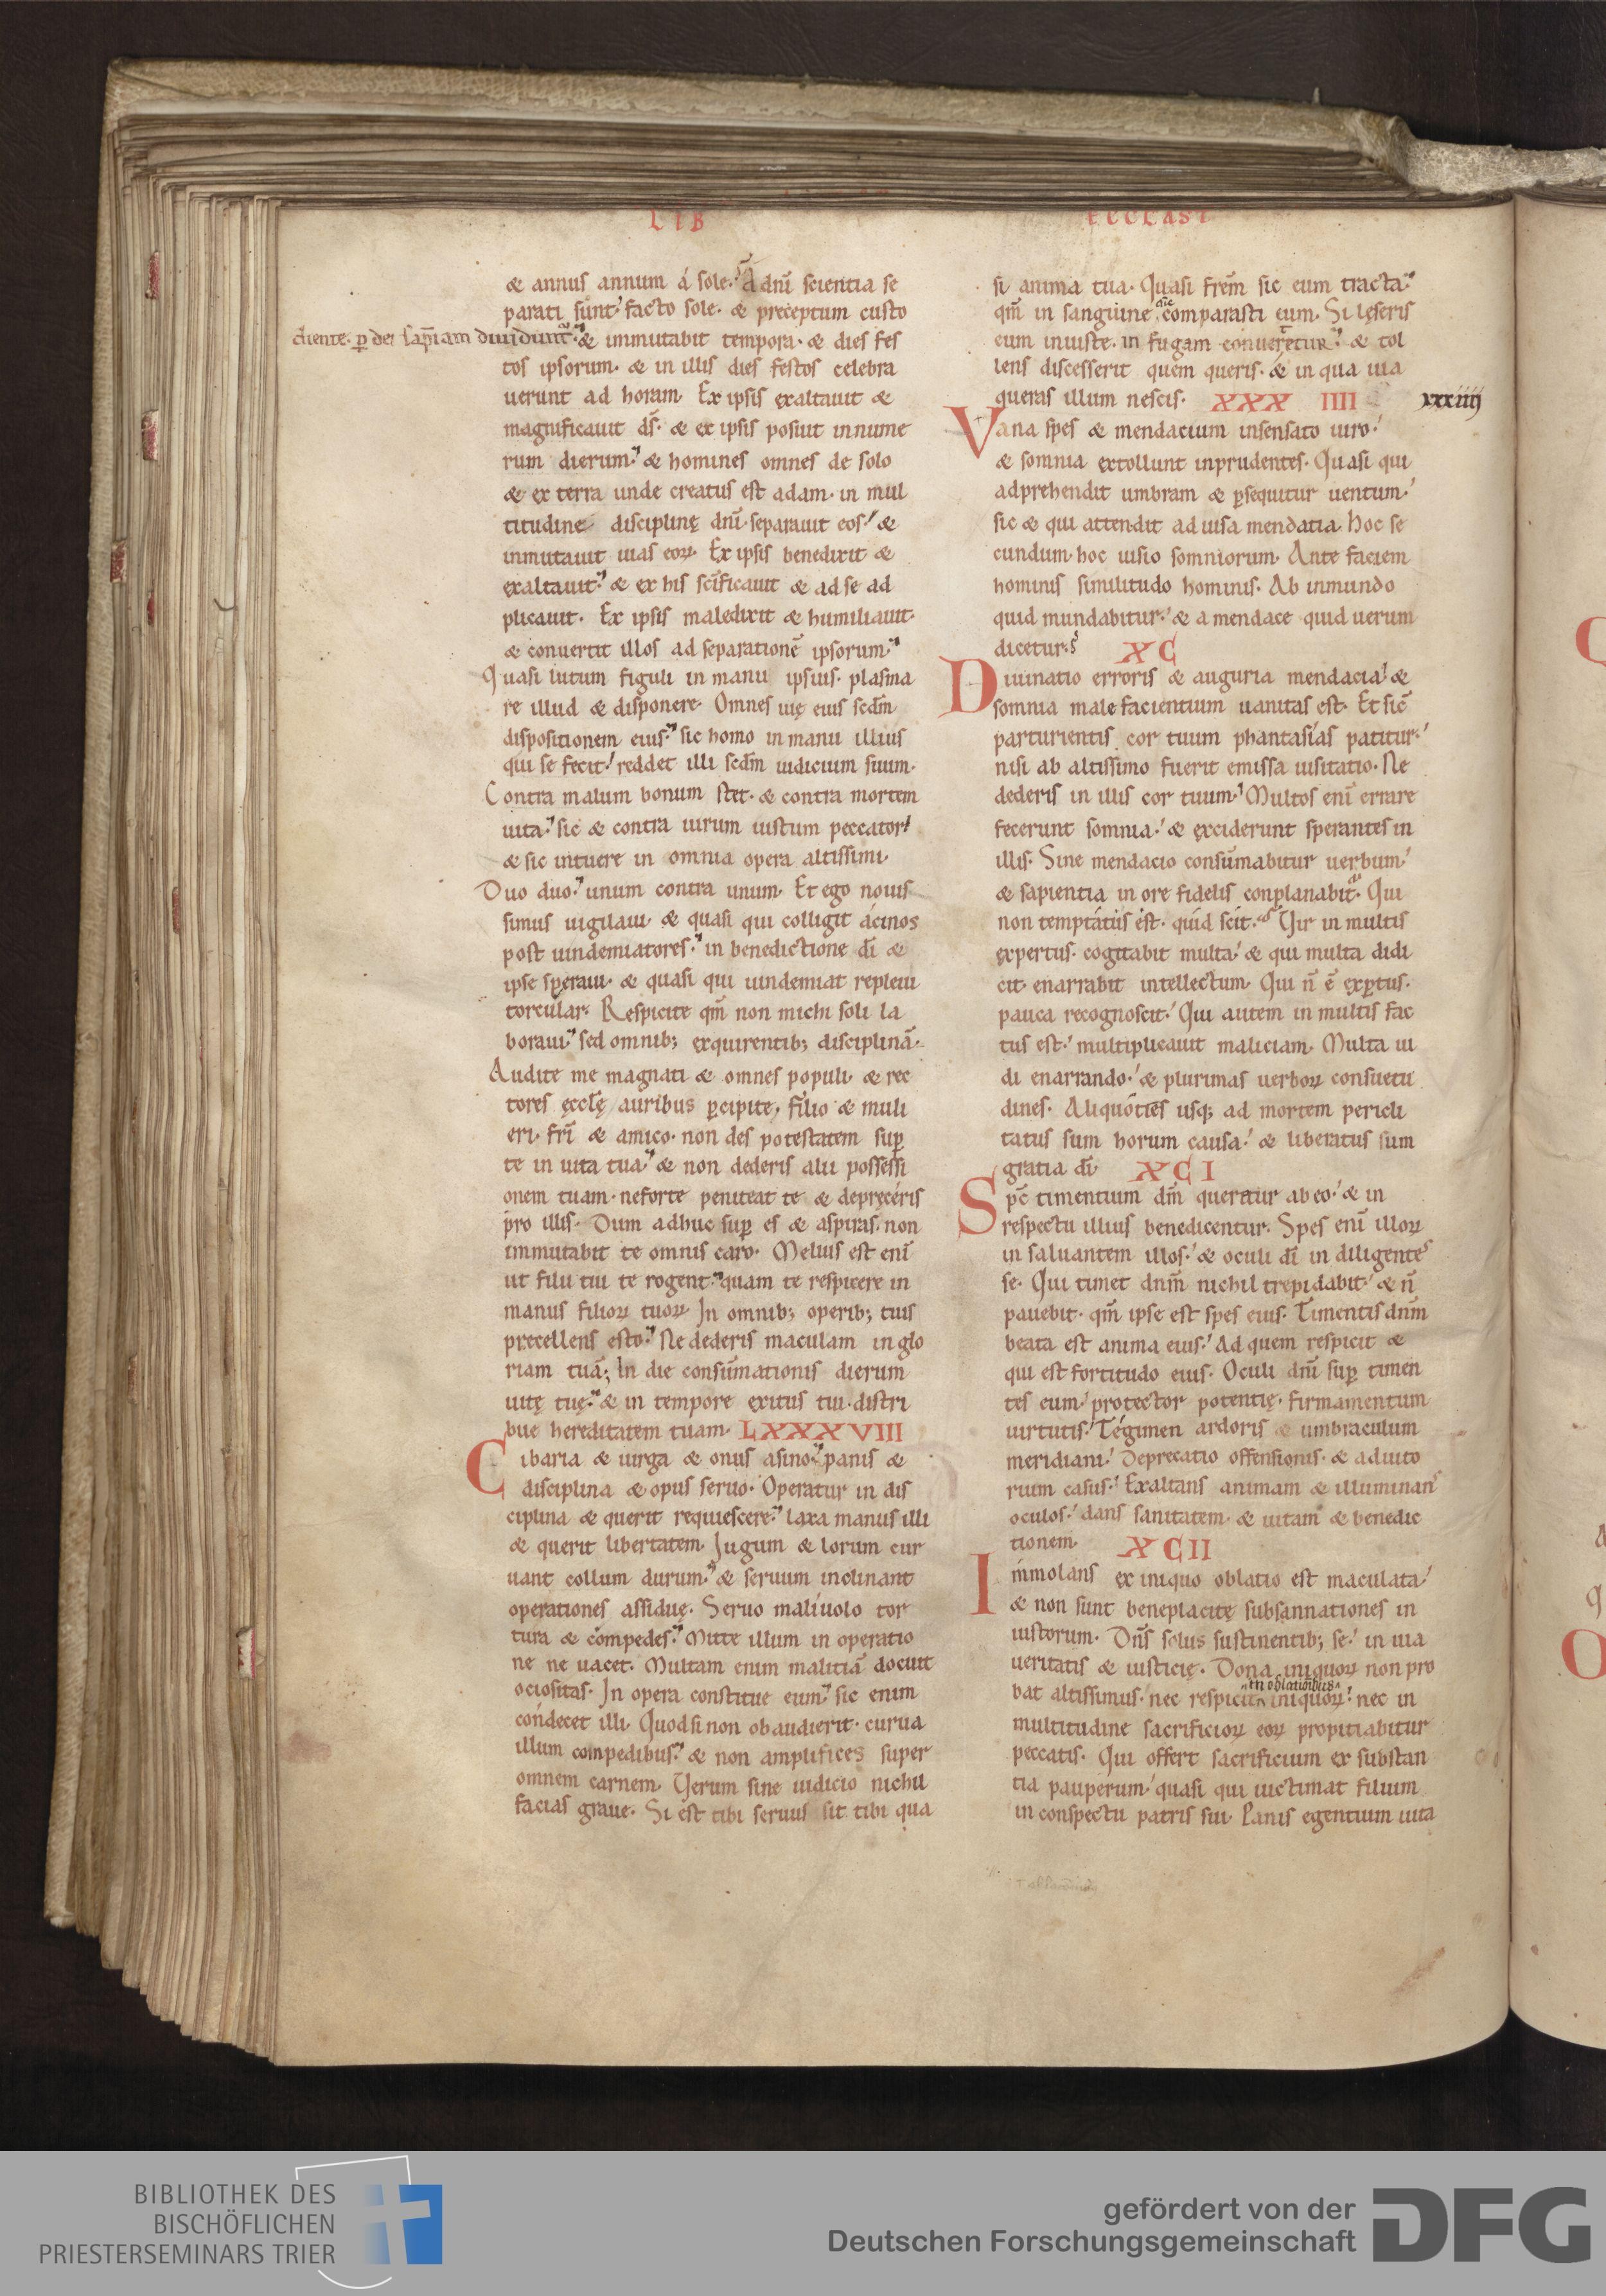 LIB
ECCLASI
& annus annum á sole. A dnī scientia se
parati sunt facto sole. & preceptum custo
diente. ꝑ dei sapīam diuidunt̄ & immutabit tempora. & dies fes
tos ipsorum. & in illis dies festos celebra
uerunt ad horam. Ex ipsis exaltauit &
magnificauit ds̄. & ex ipsis posuit in nume
rum dierum. & homines omnes de solo
& ex terra unde creatus est adam. in mul
titudine disciplinę dnī separauit eos. &
inmutauit uias eoꝝ. Ex ipsis benedixit &
exaltauit. & ex his scīficauit & ad se ad
plicauit. Ex ipsis maledixit & humiliauit.
& conuertit illos ad separationē ipsorum.
Quasi lutum figuli in manu ipsius. plasma
re illud & disponere. Omnes uię eius scdm̄
dispositionem eius. sic homo in manu illius
qui se fecit. reddet illi scdm̄ iudicium suum.
Contra malum bonum stet. & contra mortem
uita. sic & contra uirum iustum peccator.
& sic intuere in omnia opera altissimi.
Duo duo. unum contra unum. Et ego nouis
simus uigilaui. & quasi qui colligit ácinos
post uindemiatores. in benedictione dī &
ipse speraui. & quasi qui uindemiat repleui
torcular. Respicite qm̄ non michi soli la
boraui. sed omnib; exquirentib; disciplinā.
Audite me magnati & omnes populi. & rec
tores ęcclę auribus ꝑcipite. filio & muli
eri. frī & amico. non des potestatem suꝑ
te in uita tua. & non dederis alii possessi
onem tuam. ne forte peniteat te & depręcéris
pro illis. Dum adhuc suꝑ es & aspiras. non
immutabit te omnis caro. Melius est enī
ut filii tui te rogent. quam te respicere in
manus filioꝝ tuoꝝ. In omnib; operib; tuis
precellens esto. Ne dederis maculam in glo
riam tuā; In die consūmationis dierum
uitę tuę. & in tempore exitus tui. distri
bue hereditatem tuam. LXXXVIII
Cibaria & uirga & onus asino. panis &
disciplina & opus seruo. Operatur in dis
ciplina & querit requiescere. laxa manus illi
& querit libertatem. Iugum & lorum cur
uant collum durum. & seruum inclinant
operationes assiduę. Seruo maliuolo tor
tura & cómpedes. Mitte illum in operatio
ne ne uacet. Multam enim malitiā docuit
ociositas. In opera constitue eum. sic enim
condecet illi. Quod si non obaudierit. curua
illum compedibus. & non amplifices super
omnem carnem. Verum sine iudicio nichil
facias graue. Si est tibi seruus sit tibi qua
si anima tua. Quasi frēm sic eum tracta.
qm̄ in sanguine comparasti eum. Si lęseris
eum iniuste. in fugam conueretur. & tol
lens discesserit quem queris. & in qua uia
queras illum nescis. XXX IIII xxxiiij
Vana spes & mendacium insensato uiro.
& somnia extollunt inprudentes. Quasi qui
adprehendit umbram & ꝑsequitur uentum.
sic & qui attendit ad uisa mendatia. Hoc se
cundum hoc uisio somniorum. Ante faciem
hominis similitudo hominis. Ab inmundo
quid mundabitur. & a mendace quid uerum
dicetur. XC
Diuinatio erroris & auguria mendacia. &
somnia malefacientium uanitas est. Et sic̄
parturientis cor tuum phantasías patitur.
nisi ab altissimo fuerit emissa uisitatio. Ne
dederis in illis cor tuum. Multos enī errare
fecerunt somnia. & exciderunt sperantes in
illis. Sine mendacio consūmabitur uerbum.
& sapientia in ore fidelis conplanabit̄. Qui
non temptátus est. quid scit. Vir in multis
expertus. cogitabit multa. & qui multa didi
cit. enarrabit intellectum. Qui n̄ ē exꝑtus.
pauca recognoscit. Qui autem in multis fac
tus est. multiplicauit maliciam. Multa ui
di enarrando. & plurimas uerboꝝ consuetu
dines. Aliquóties usq; ad mortem pericli
tatus sum horum causa. & liberatus sum
gratia dī. XCI
Spc̄ timentium dm̄ queratur ab eo. & in
respectu illius benedicentur. Spes enī illoꝝ
in saluantem illos. & oculi dī in diligentes
se. Qui timet dnm̄ nichil trepidabit. & n̄
pauebit. qm̄ ipse est spes eius. Timentis dnm̄
beata est anima eius. Ad quem respicit &
qui est fortitudo eius. Oculi dnī suꝑ timen
tes eum. protector potentię. firmamentum
uirtutis. Tégimen ardoris & umbraculum
meridiani. Deprecatio offensionis. & adiuto
rium casus. Exaltans animam & illuminans
oculos. dans sanitatem. & uitam & benedic
tionem. XCII
Immolans ex iniquo oblatio est maculata.
& non sunt beneplacitę subsannationes in
iustorum. Dns̄ solus sustinentib; se. in uia
ueritatis & iusticię. Dona iniquoꝝ non pro
bat altissimus. nec respicit in oblationibus iniquoꝝ. nec in
multitudine sacrificioꝝ eoꝝ propitiabitur
peccatis. Qui offert sacrificium ex substan
tia pauperum. quasi qui uictimat filium
in conspectu patris sui. Panis egentium uita
BIBLIOTHEK DES
BISCHÖFLICHEN
PRIESTERSEMINARS TRIER
gefördert von der
Deutschen Forschungsgemeinschaft
DFG